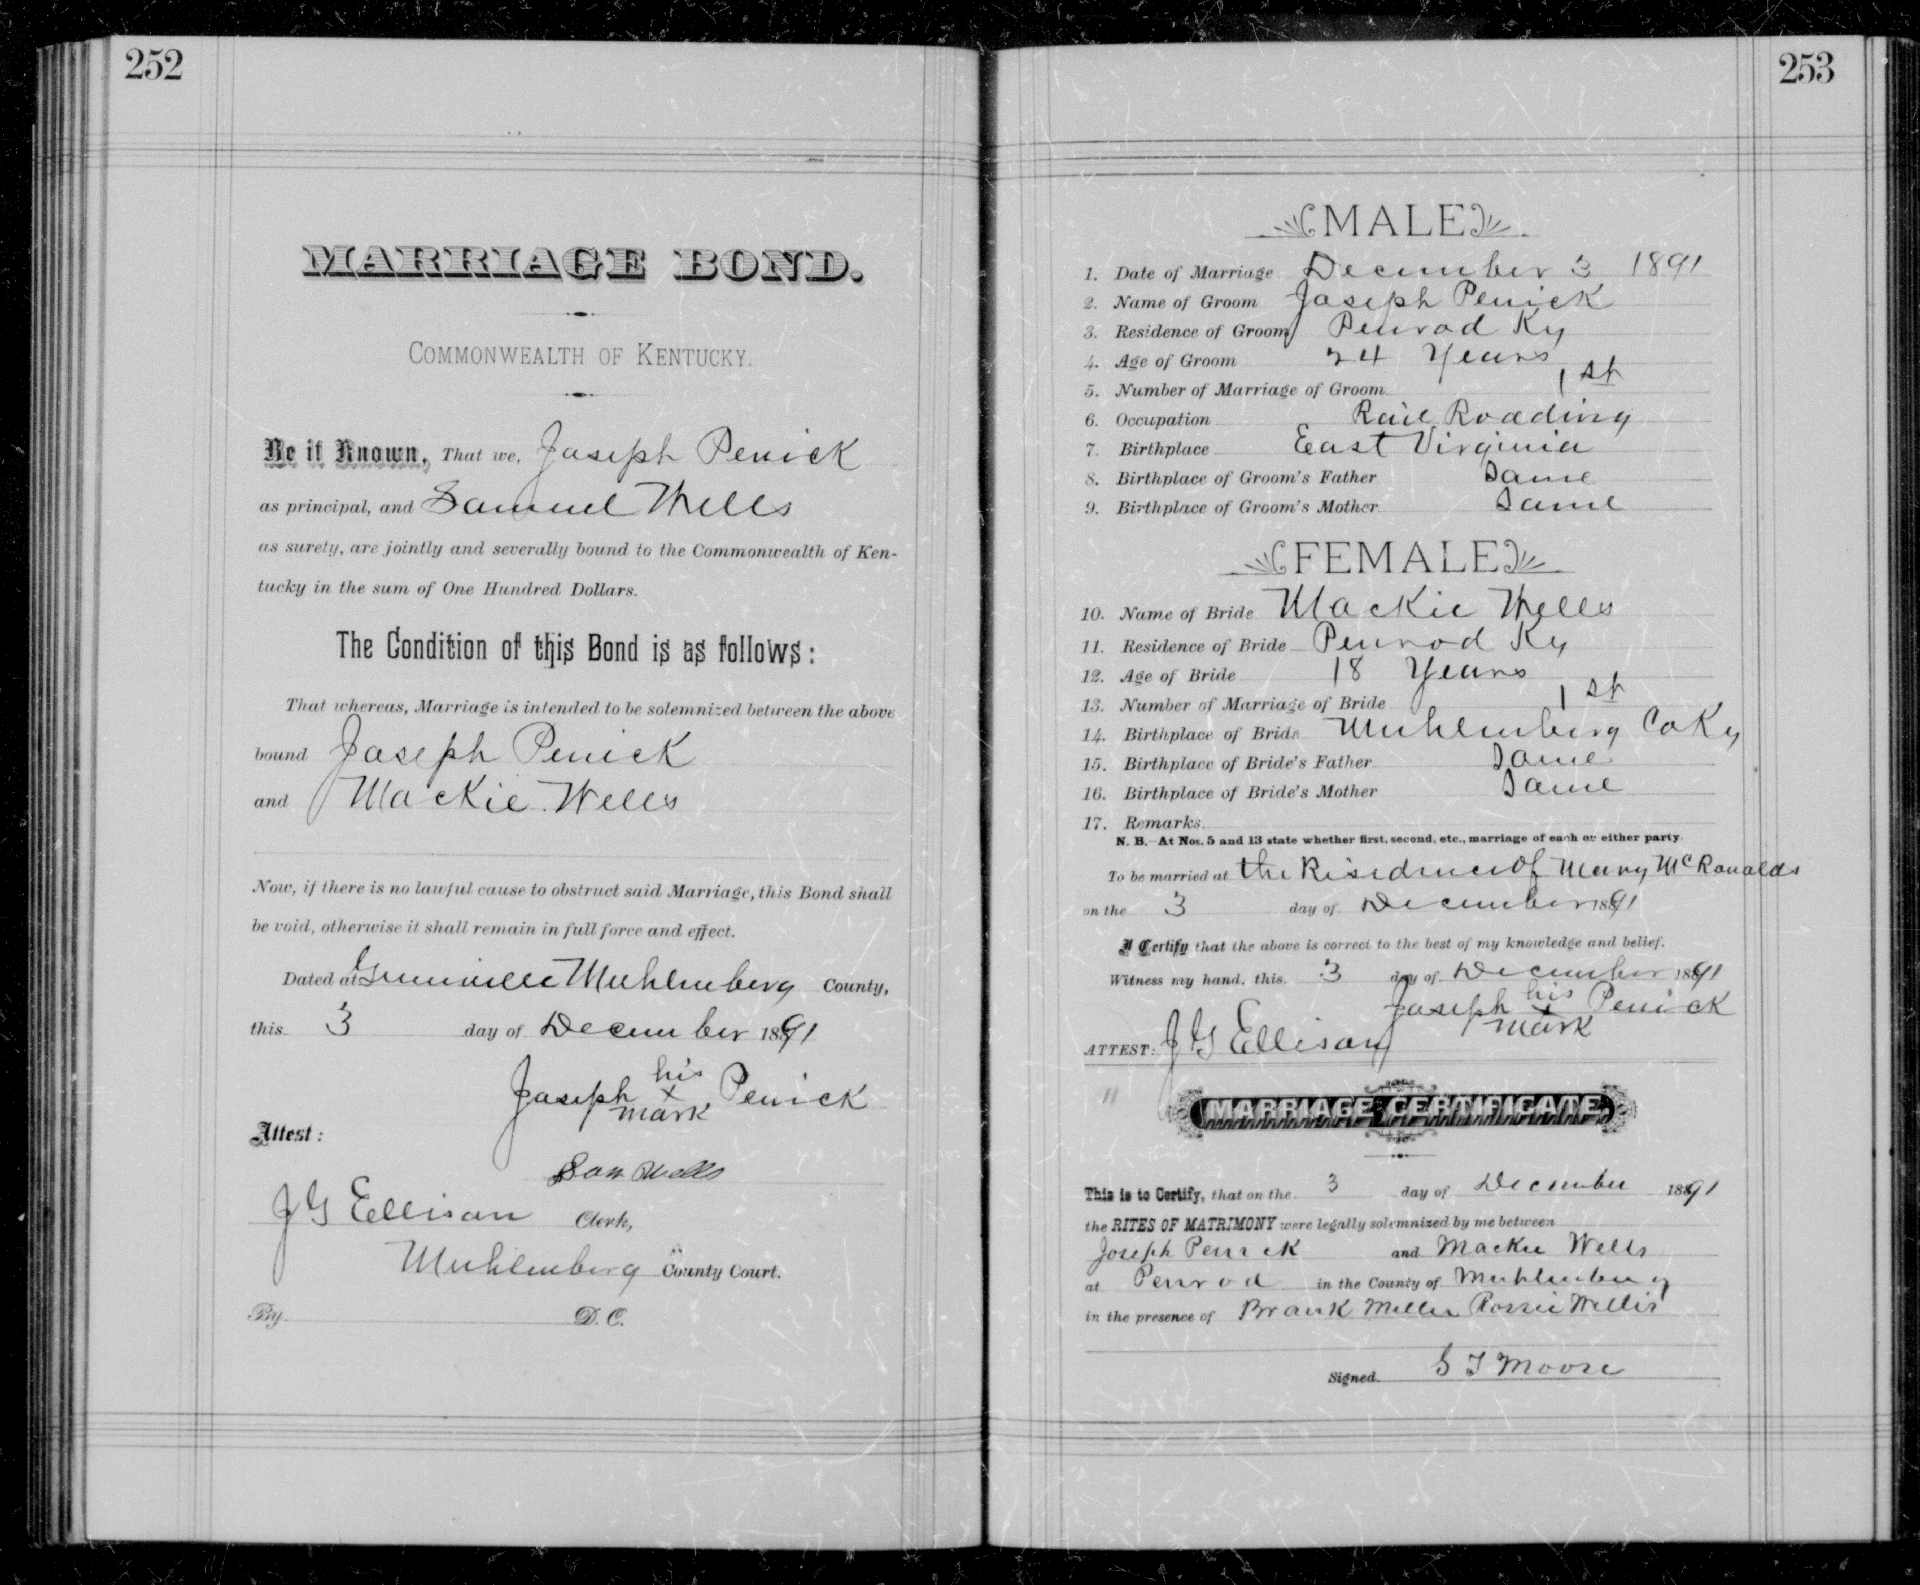 252
MARRIAGE BOND.
COMMONWEALTH OF KENTUCKY.
Be it Known, That we, Joseph Penick
as principal, and Samuel Wells
as surety, are jointly and severally bound to the Commonwealth of Ken-
tucky in the sum of One Hundred Dollars.
The Condition of this Bond is as follows:
That whereas, Marriage is intended to be solemnized between the above
bound Joseph Penick
and Mackie Wells
Now, if there is no lawful cause to obstruct said Marriage, this Bond shall
be void, otherwise it shall remain in full force and effect.
Dated at Greenville Muhlenberg County,
this 3 day of December 1891
Joseph his x mark Penick
Attest:
Sam Wells
J G Ellison Clerk,
Muhlenberg County Court.
By D. C.
253
MALE
1. Date of Marriage December 3 1891
2. Name of Groom Joseph Penick
3. Residence of Groom Penrod Ky
4. Age of Groom 24 Years
5. Number of Marriage of Groom 1 st
6. Occupation Rail Roading
7. Birthplace East Virginia
8. Birthplace of Groom's Father Same
9. Birthplace of Groom's Mother Same
FEMALE
10. Name of Bride Mackie Wells
11. Residence of Bride Penrod Ky
12. Age of Bride 18 Years
13. Number of Marriage of Bride 1 st
14. Birthplace of Bride Muhlenberg Co Ky
15. Birthplace of Bride's Father Same
16. Birthplace of Bride's Mother Same
17. Remarks
N. B.—At Nos. 5 and 13 state whether first, second, etc., marriage of each or either party
To be married at the Residence of Mary McRonalds
on the 3 day of December 1891
I Certify that the above is correct to the best of my knowledge and belief.
Witness my hand, this 3 day of December 1891
Joseph his x mark Penick
ATTEST: J G Ellison
MARRIAGE CERTIFICATE.
This is to Certify, that on the 3 day of December 1891
the RITES OF MATRIMONY were legally solemnized by me between
Joseph Penick and Mackie Wells
at Penrod in the County of Muhlenberg
in the presence of Brank Miller Rossie Willis
Signed S T Moore